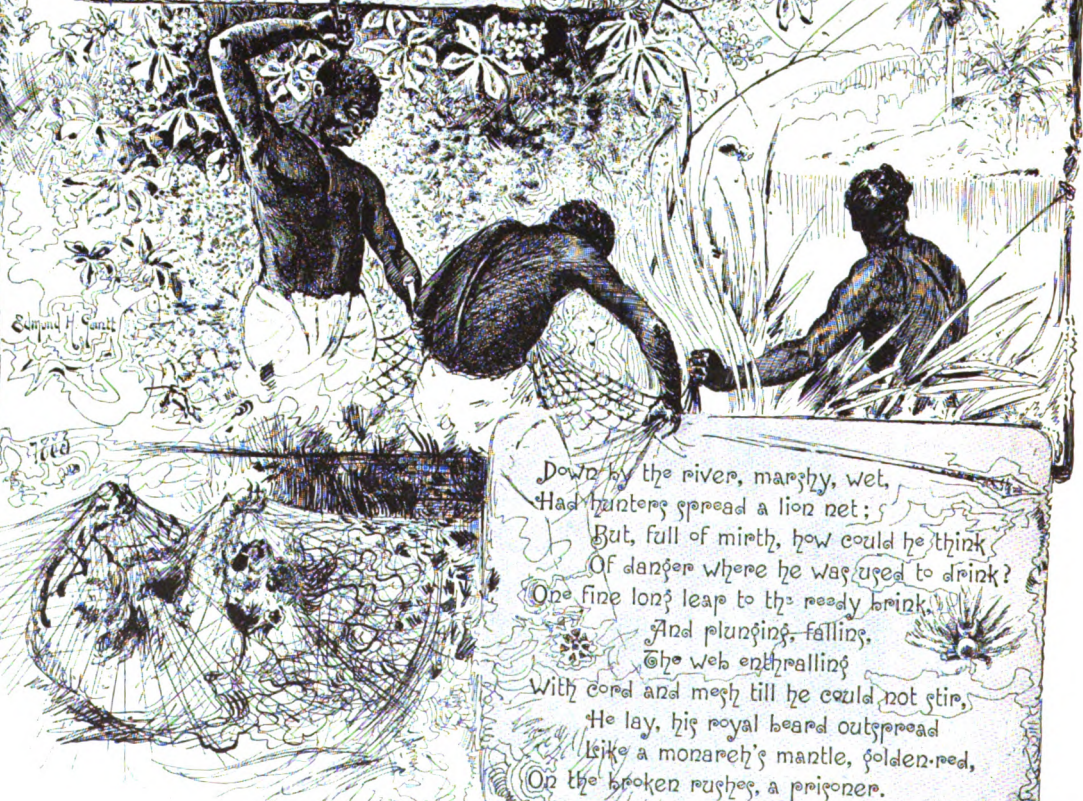 Edmund H. Garrett
Down by the river, marshy, wet,
Had hunters spread a lion net;
But, full of mirth, how could he think
Of danger where he was used to drink?
One fine long leap to the reedy brink,
And plunging, falling,
The web enthralling
With cord and mesh till he could not stir,
He lay, his royal beard outspread
Like a monarch's mantle, golden-red,
On the broken rushes, a prisoner.